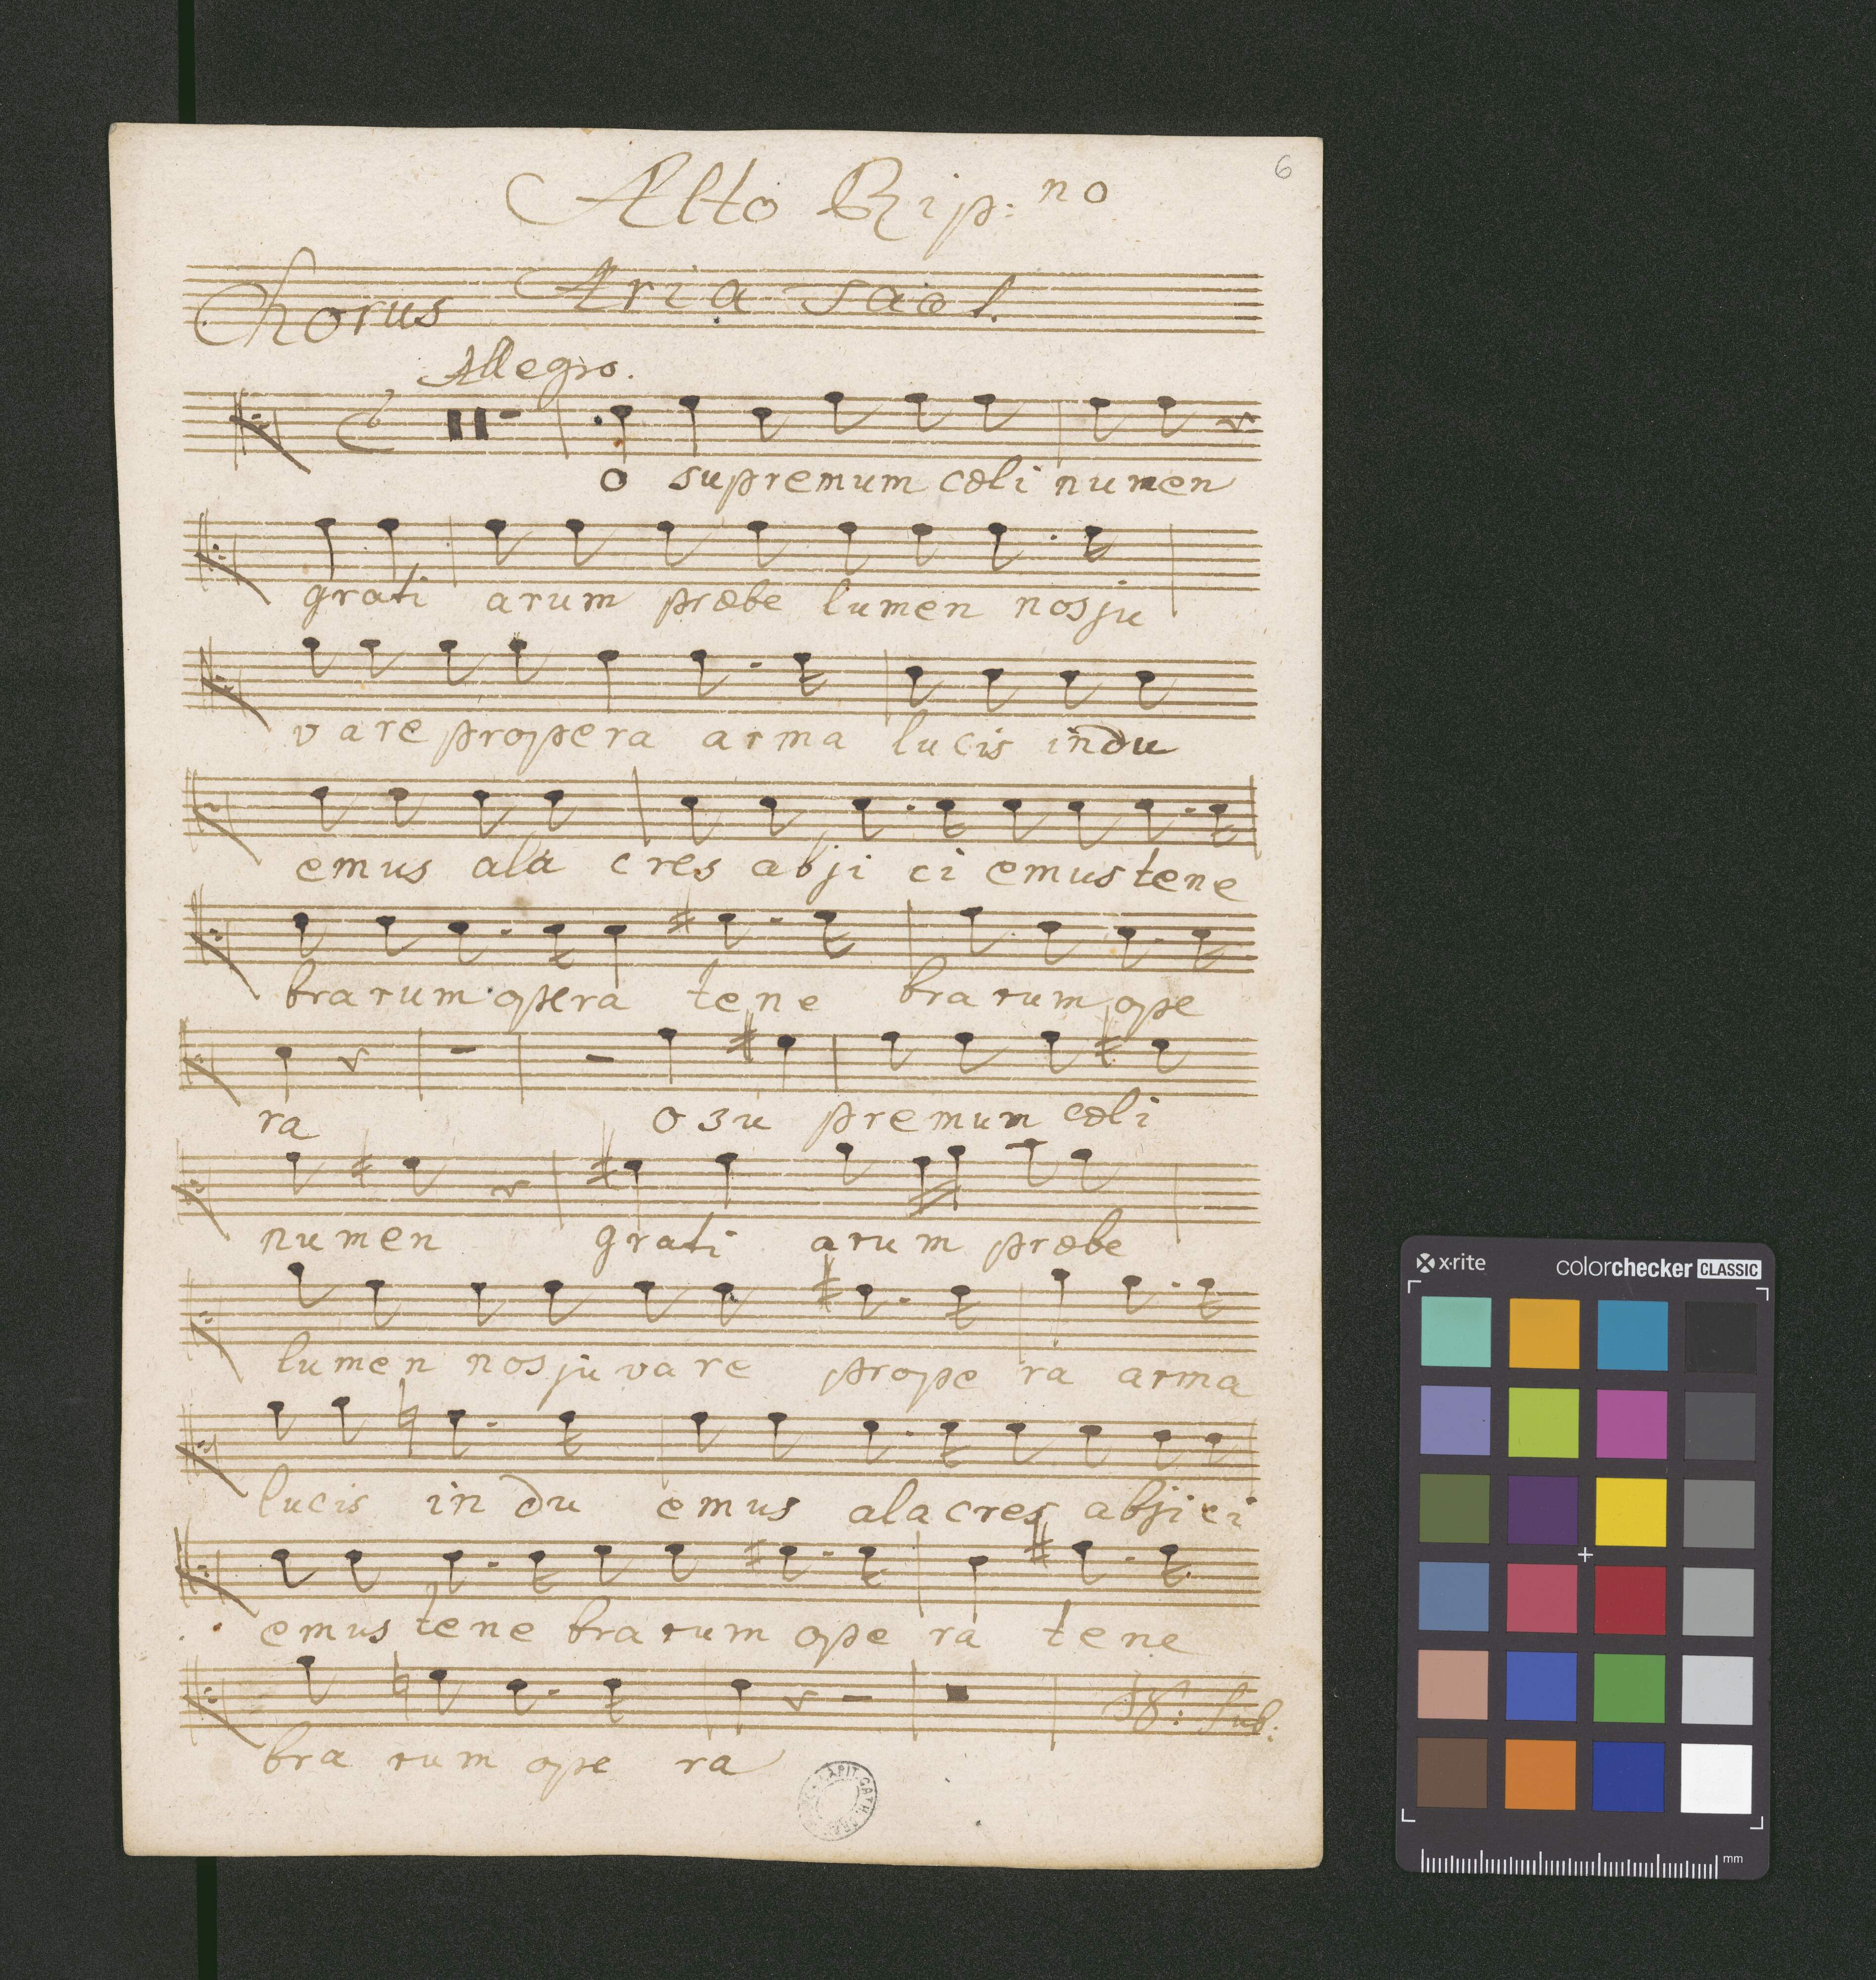 6
Alto Rip: no
Chorus Aria
Allegro.
o supremum cœli numen
grati arum præbe lumen nos ju
vare propera arma lucis indu
emus ala cres abji ci emus tene
brarum opera tene brarum ope
ra o su premum cœli
numen grati arum præbe
lumen nos juvare prope ra arma
lucis in du emus alacres abjici
emus tene brarum ope ra tene
bra rum ope ra
x·rite colorchecker CLASSIC
mm